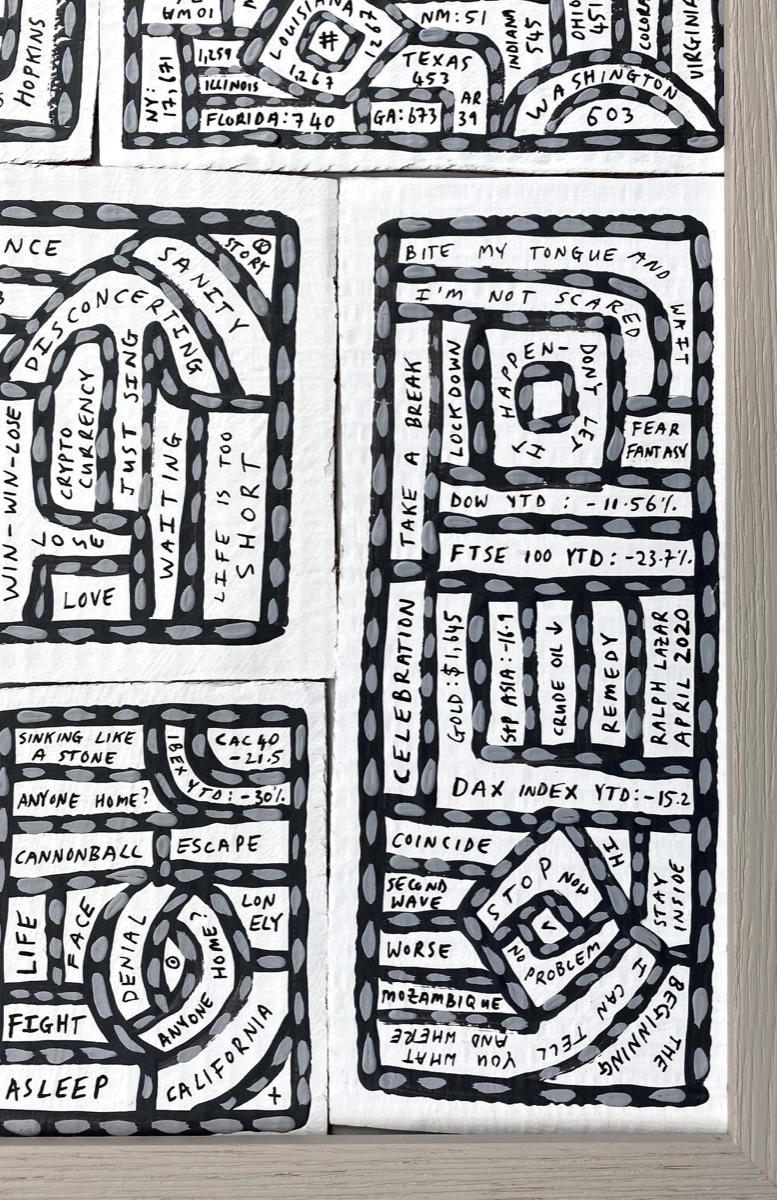 HOPKINS
IOWA
NY:
17,671
1,259
ILLINOIS
LOUISIANA
1267
1,267
#
FLORIDA:740
NM:51
TEXAS
453
GA:673
AR
39
INDIANA
545
OHIO
451
WASHINGTON
603
VIRGINIA
NCE
SANITY
STORY
DISCONCERTING
WIN-WIN-LOSE
CRYPTO
CURRENCY
JUST SING
WAITING
LIFE IS TOO
SHORT
LOSE
LOVE
BITE MY TONGUE AND
WAIT
I'M NOT SCARED
TAKE A BREAK
LOCKDOWN
DON'T LET
IT
HAPPEN-
FEAR
FANTASY
DOW YTD : -11.56%.
FTSE 100 YTD: -23.7%.
CELEBRATION
GOLD:$1,645
S+P ASIA:-16.9
CRUDE OIL ↓
REMEDY
RALPH LAZAR
APRIL 2020
DAX INDEX YTD:-15.2
COINCIDE
SECOND
WAVE
WORSE
MOZAMBIQUE
STOP
NOW
NO PROBLEM
HI
STAY
INSIDE
I CAN TELL
YOU WHAT
AND WHERE
THE
BEGINNING
SINKING LIKE
A STONE
IBEX YTD: -30%.
CAC 40
-21.5
ANYONE HOME?
CANNONBALL
ESCAPE
LIFE
FACE
DENIAL
ANYONE HOME?
LON
ELY
FIGHT
CALIFORNIA
ASLEEP
+